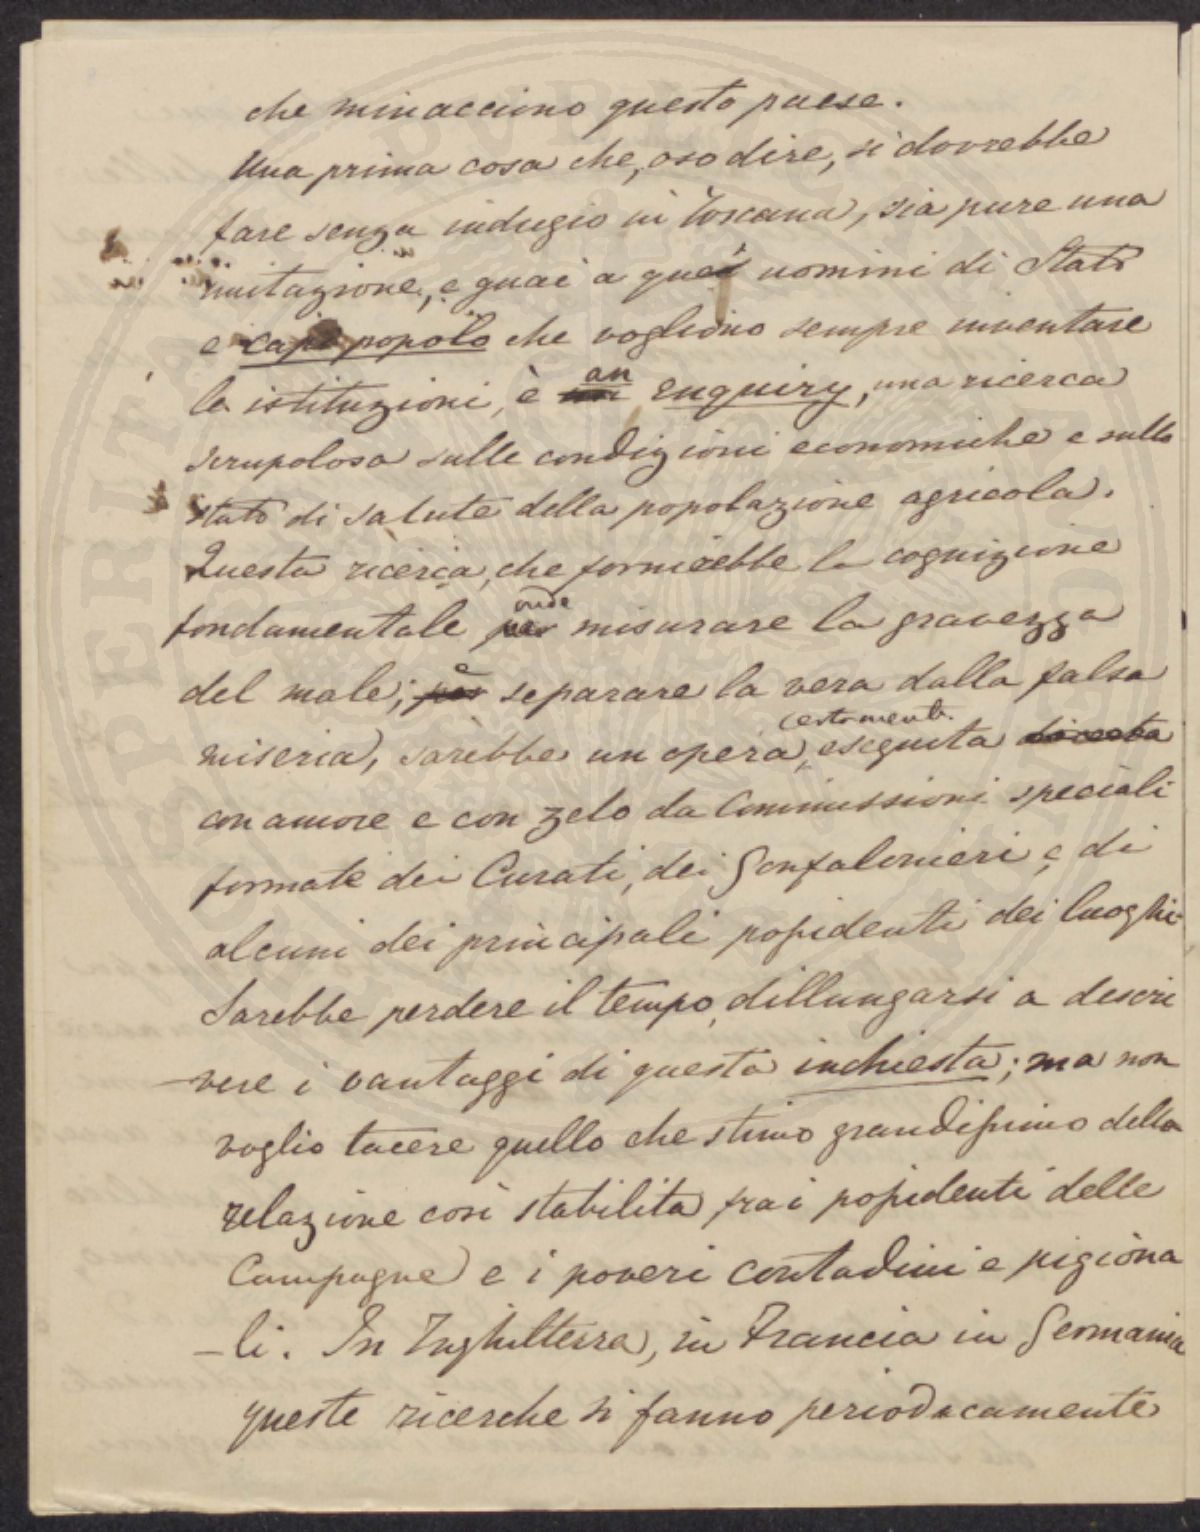 che minacciono questo paese.
Una prima cosa che, oso dire, si dovrebbe
fare senza indugio in Toscana, sia pure una
imitazione, e guai a quei uomini di Stato
e capi popolo che vogliono sempre inventare
le istituzioni, è an enquiry, una ricerca
scrupolosa sulle condizioni economiche e sullo
stato di salute della popolazione agricola.
Questa ricerca, che fornirebbe la cognizione
fondamentale onde misurare la gravezza
del male, e separare la vera dalla falsa
miseria, sarebbe un opera, certamente eseguita
con amore e con zelo da Commissioni speciali
formate dei Curati, dei Gonfalonieri e di
alcuni dei principali possidenti dei luoghi.
Sarebbe perdere il tempo, dillungarsi a descri
-vere i vantaggi di questa inchiesta; ma non
voglio tacere quello che stimo grandissimo della
relazione così stabilita fra i possidenti delle
Campagne e i poveri contadini e pigiona
-li. In Inghilterra, in Francia in Germania
queste ricerche si fanno periodacamente